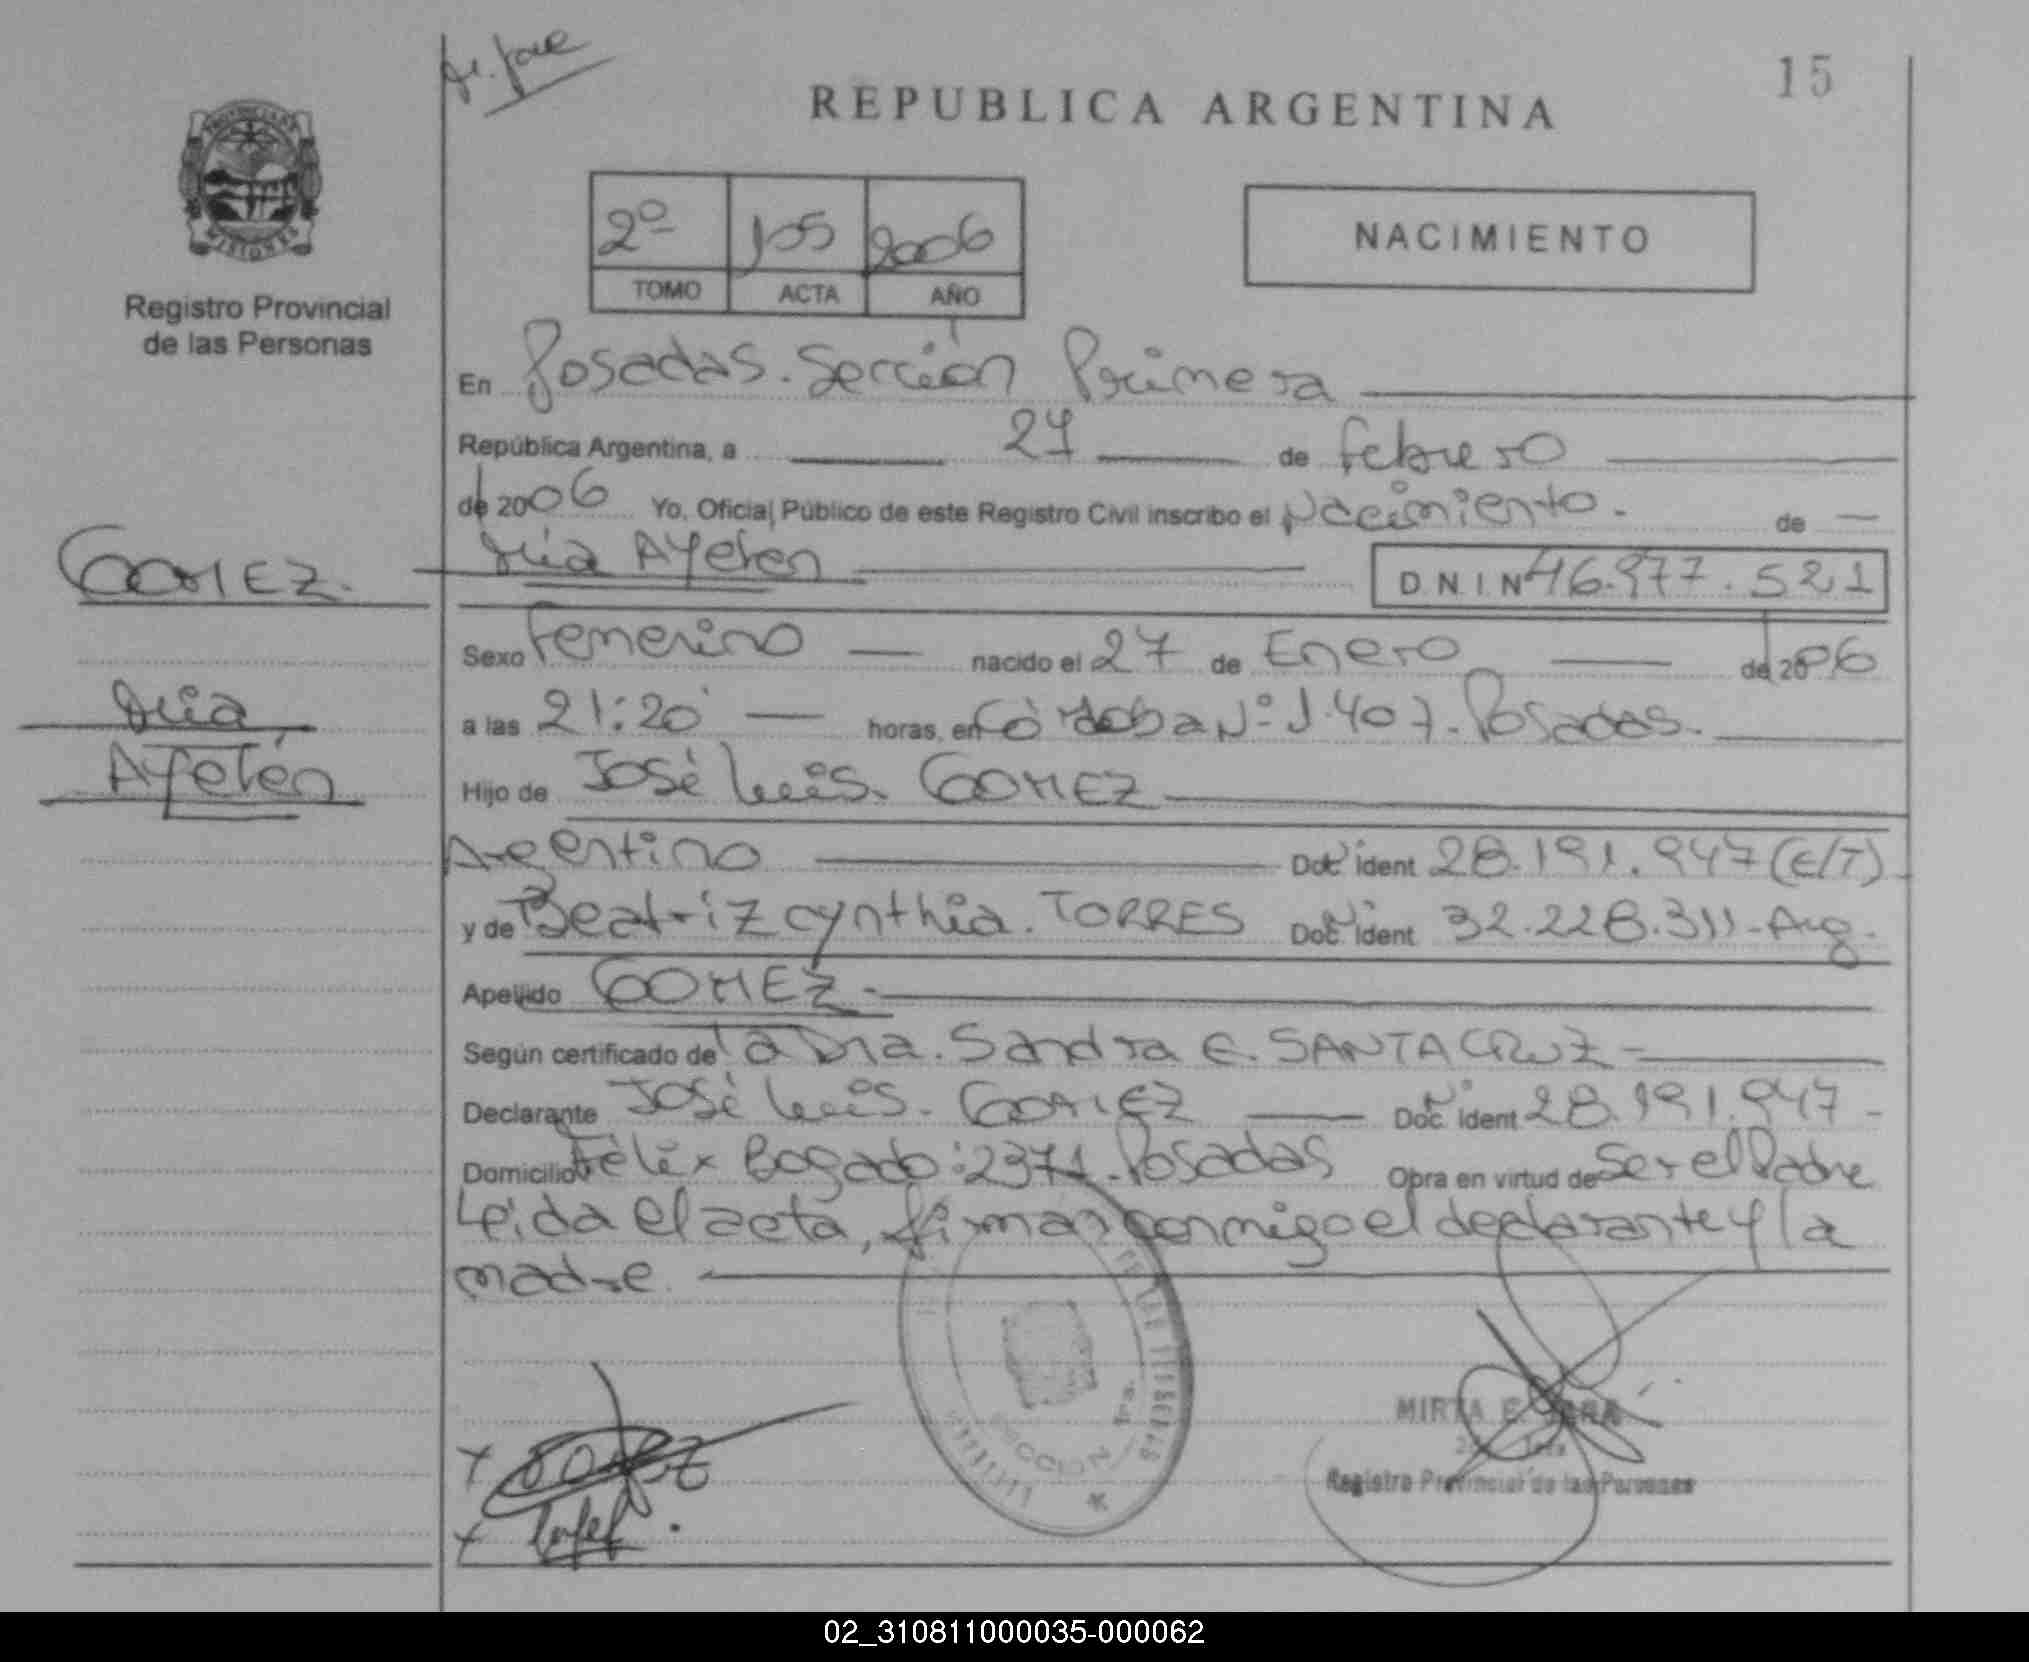 15
REPUBLICA ARGENTINA
PROVINCIA DE
MISIONES
Registro Provincial
de las Personas
2º 105 2006
TOMO ACTA AÑO
NACIMIENTO
En Posadas. Sección Primera
República Argentina, a 27 de febrero
de 2006 Yo, Oficial Público de este Registro Civil inscribo el Nacimiento. de
GOMEZ. Mia Ayelen D.N.I.N 46.977.521
Sexo Femenino nacido el 27 de Enero de 2006
Mia
a las 21:20 horas, en Córdoba Nº 1.407. Posadas.
Ayelén
Hijo de José Luis. GOMEZ
Argentino Doc. ident 28.191.947 (E/T)
y de Beatriz Cynthia. TORRES Doc. ident 32.228.311 - Arg.
Apellido GOMEZ.
Según certificado de la Dra. Sandra E. SANTA CRUZ
Declarante José Luis. GOMEZ Doc. ident 28.191.947
Domicilio Félix Bogado: 2371. Posadas Obra en virtud de Ser el Padre
Leida el acta, firman conmigo el declarante y la
madre.
SECCION 1ra.
MIRTA E.
Registro Provincial de las Personas
02_310811000035-000062